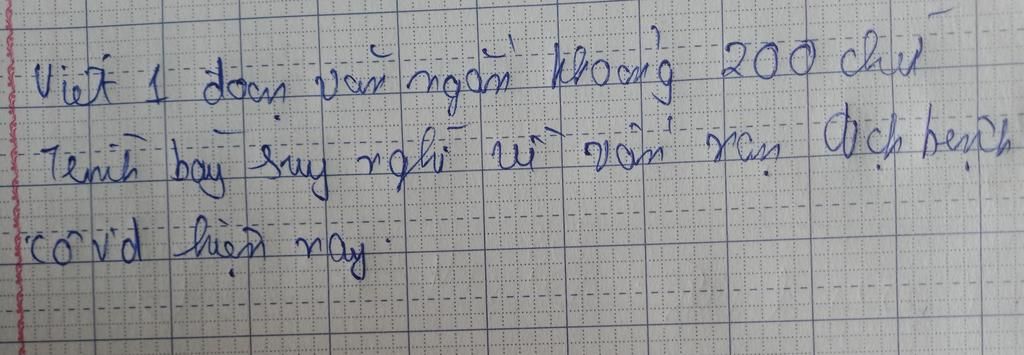 Viết 1 đoạn văn ngắn khoảng 200 chữ
Trình bày suy nghĩ về vấn nạn dịch bệnh
covid hiện nay.